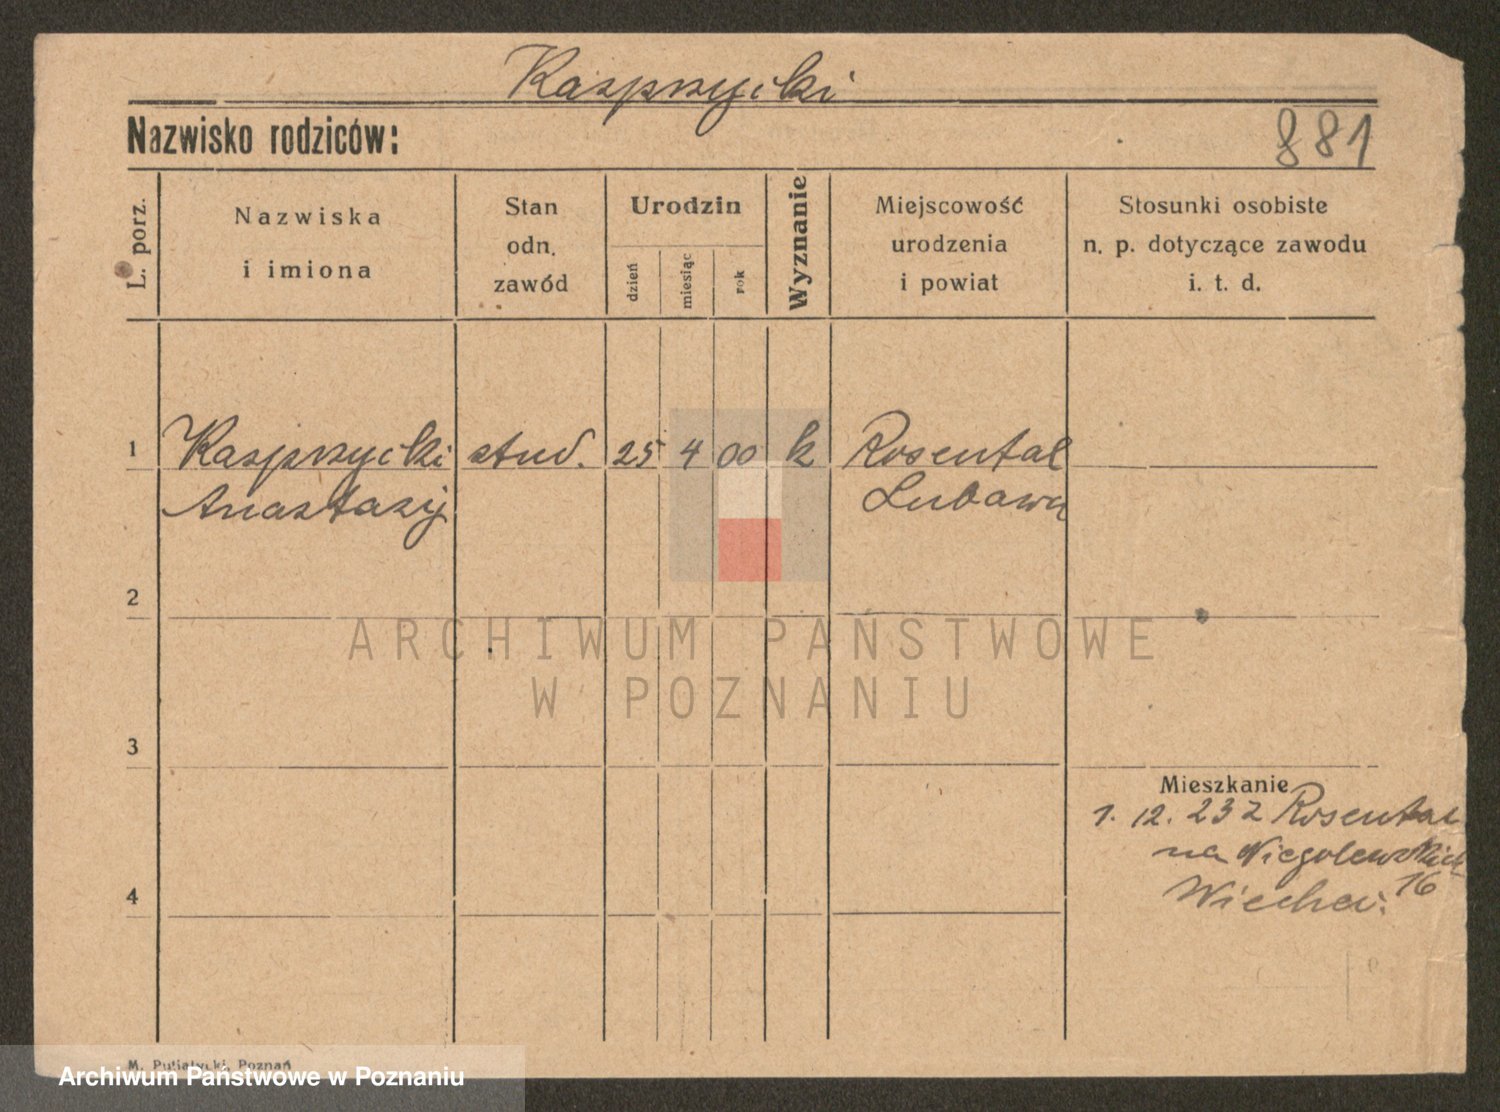 Kasprzycki
Nazwisko rodziców:
881
L. porz.
Nazwiska
i imiona
Stan
odn.
zawód
Urodzin
dzień
miesiąc
rok
Wyznanie
Miejscowość
urodzenia
i powiat
Stosunki osobiste
n. p. dotyczące zawodu
i. t. d.
1 Kasprzycki stud. 25 4 00 k Rosental
Anastazy Lubawa
2
ARCHIWUM PAŃSTWOWE
W POZNANIU
3
Mieszkanie
1. 12. 23 z Rosental
na Niegolewskich
16
4
M. Putiatycki, Poznań
Archiwum Państwowe w Poznaniu